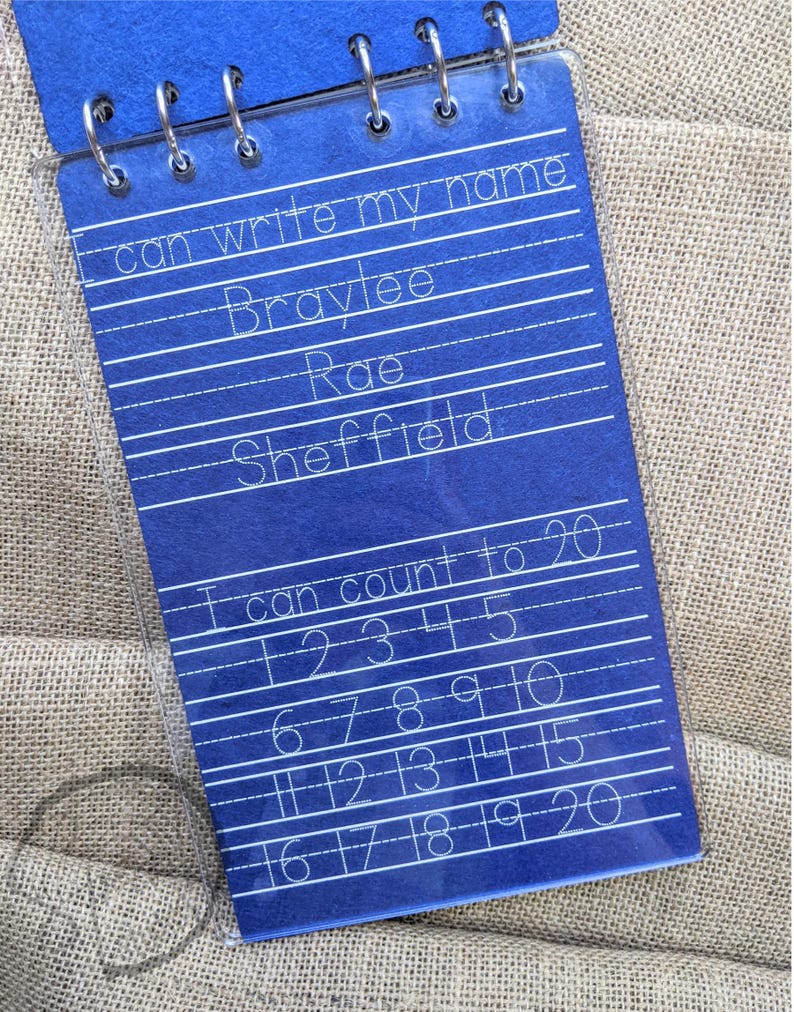 I can write my name
Braylee
Rae
Sheffield
I can count to 20
1 2 3 4 5
6 7 8 9 10
11 12 13 14 15
16 17 18 19 20